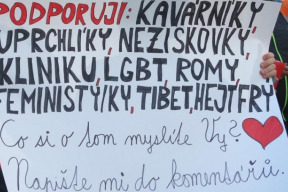 PODPORUJI: KAVÁRNÍKY,
UPRCHLÍKY, NEZISKOVKY,
KLINIKU, LGBT, ROMY,
FEMINISTY/KY, TIBET, HEJTFRY
Co si o tom myslíte Vy?
Napište mi do komentářů.